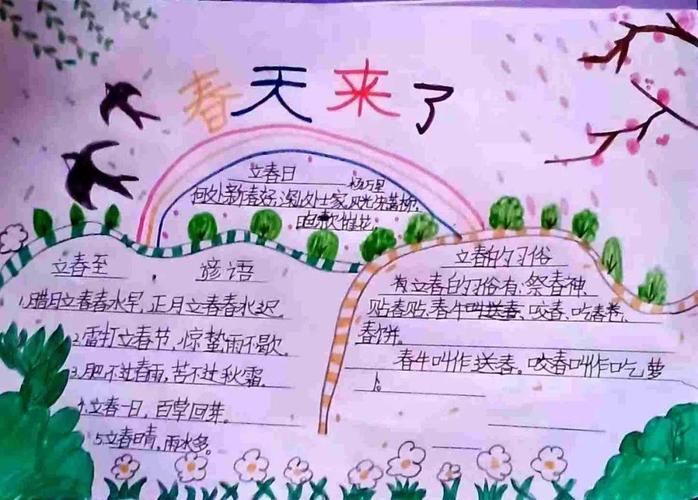 春天来了
立春日
何处新春好，深
立春至 谚语
1.腊月立春春水早，正月立春春水迟。
2.雷打立春节，惊蛰雨不歇。
3.肥不过春雨，苦不过秋霜。
4.立春一日，百草回芽。
5.立春晴，雨水多。
立春的习俗
有立春的习俗有：祭春神
贴春贴，春牛叫送春，咬春，吃春卷，
春饼。
春牛叫作送春。咬春叫作吃萝
卜。